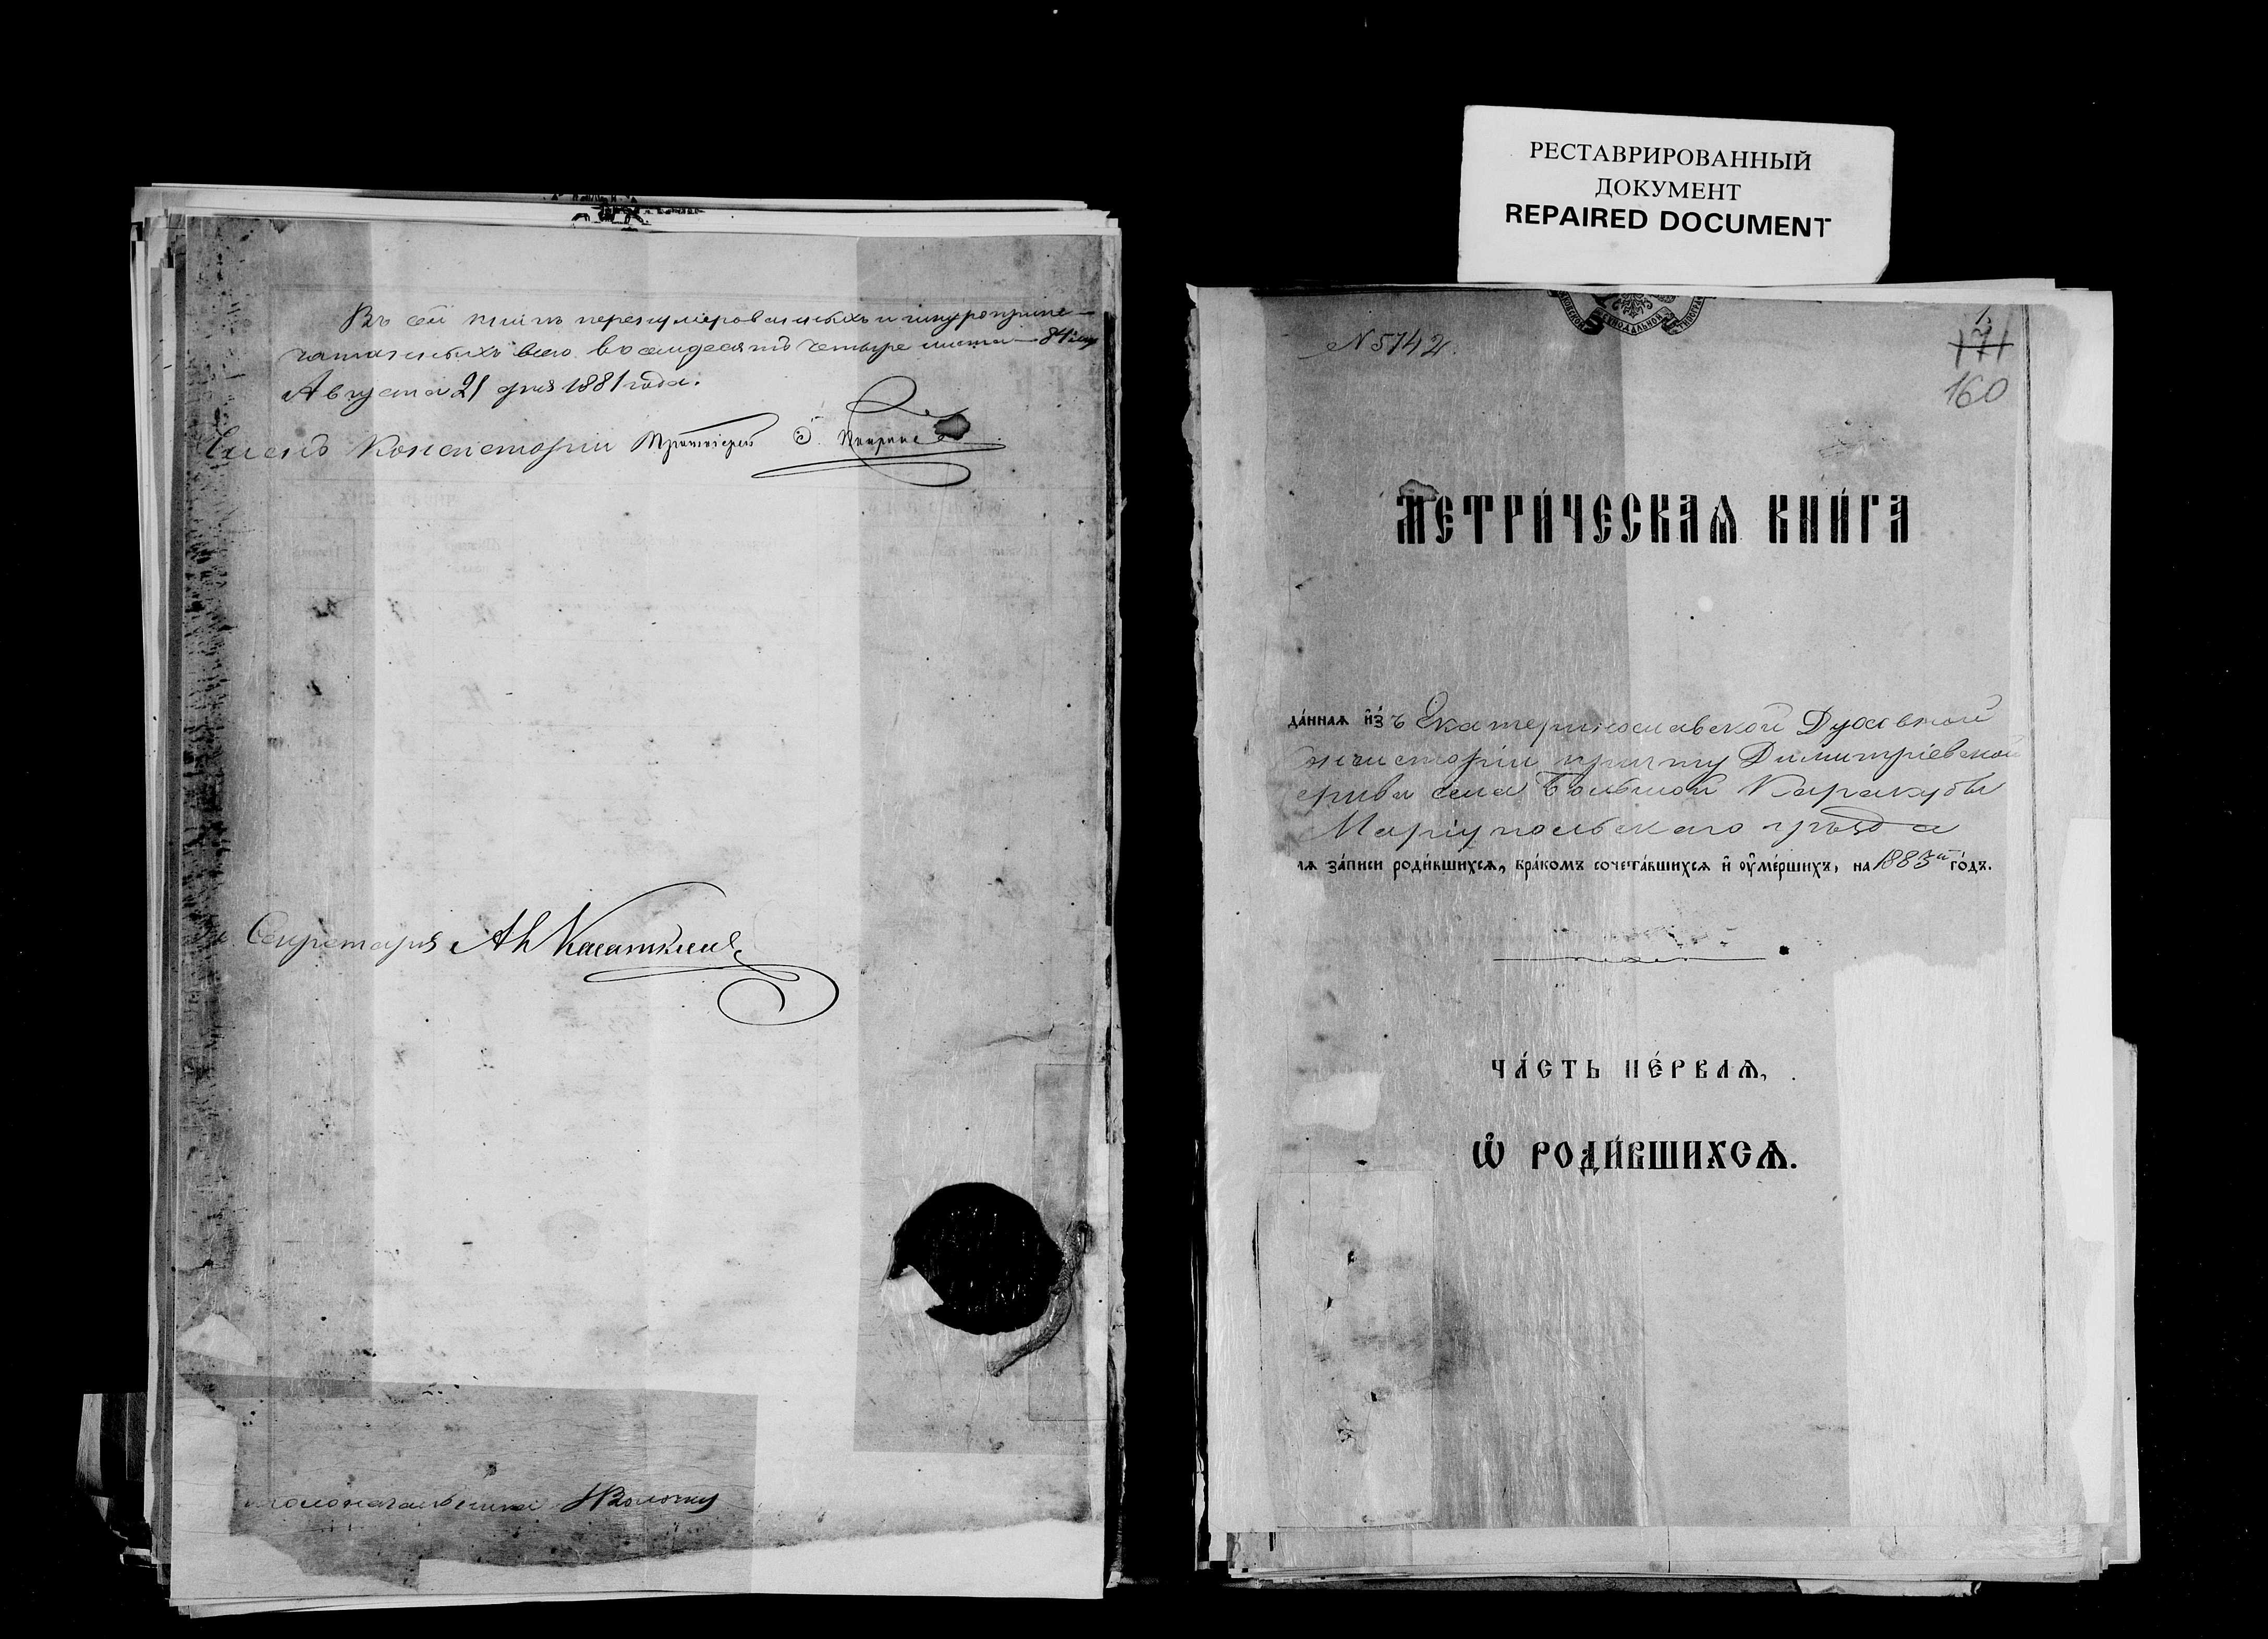 Въ сей книгѣ перенумерованныхъ и шнуроприпе-
чатанныхъ всего восемдесятъ четыре листа — 84
Августа 21 дня 1881 года.
Членъ Консисторіи Протоіерей
Секретарь
столоначальникъ
РЕСТАВРИРОВАННЫЙ
ДОКУМЕНТ
REPAIRED DOCUMENT
СѴНОДАЛЬНОЙ
№ 5742.
1
171
160
МЕТРИ́ЧЕСКАѦ КНИ́ГА
да́ннаѧ и҆з̾ Екатеринославской Духовной
нсисторіи причту Димитріевской
еркви села Большой Каракубы
Маріупольскаго уѣзда
лѧ за́писи роди́вшихсѧ, бра́комъ сочета́вшихсѧ и҆ ᲂу҆ме́ршихъ, на 1883й го́дъ.
ЧА́СТЬ ПЕ́РВАѦ,
Ѽ РОДИ́ВШИХСѦ.